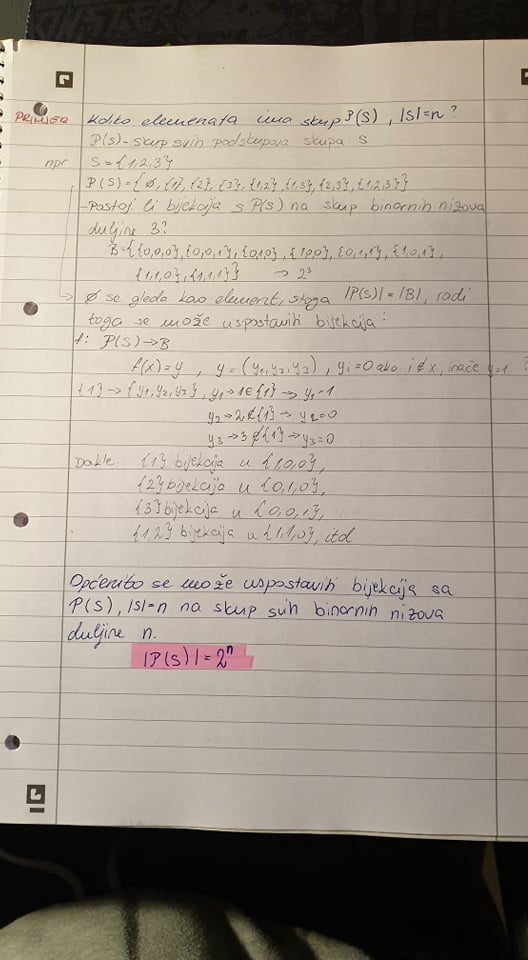 PRIMJER Koliko elemenata ima skup P(S), |S|=n?
P(S)-skup svih podskupova skupa S
npr S={1,2,3}
P(S)={∅,{1},{2},{3},{1,2},{1,3},{2,3},{1,2,3}}
-Postoji li bijekcija s P(S) na skup binarnih nizova
duljine 3?
B={{0,0,0},{0,0,1},{0,1,0},{1,0,0},{0,1,1},{1,0,1},
{1,1,0},{1,1,1}} → 2³
→ ∅ se gleda kao element, stoga |P(S)|=|B|, radi
toga se može uspostaviti bijekcija:
f: P(S)→B
f(x)=y, y=(y₁,y₂,y₃), yᵢ=0 ako i∉x, inače y=1 ?
{1}→{y₁,y₂,y₃}, y₁→1∈{1}→y₁=1
y₂→2∉{1}→y₂=0
y₃→3∉{1}→y₃=0
Dakle: {1} bijekcija u {1,0,0},
{2} bijekcija u {0,1,0},
{3} bijekcija u {0,0,1},
{1,2} bijekcija u {1,1,0}, itd
Općenito se može uspostaviti bijekcija sa
P(S), |S|=n na skup svih binarnih nizova
duljine n.
|P(S)|=2ⁿ